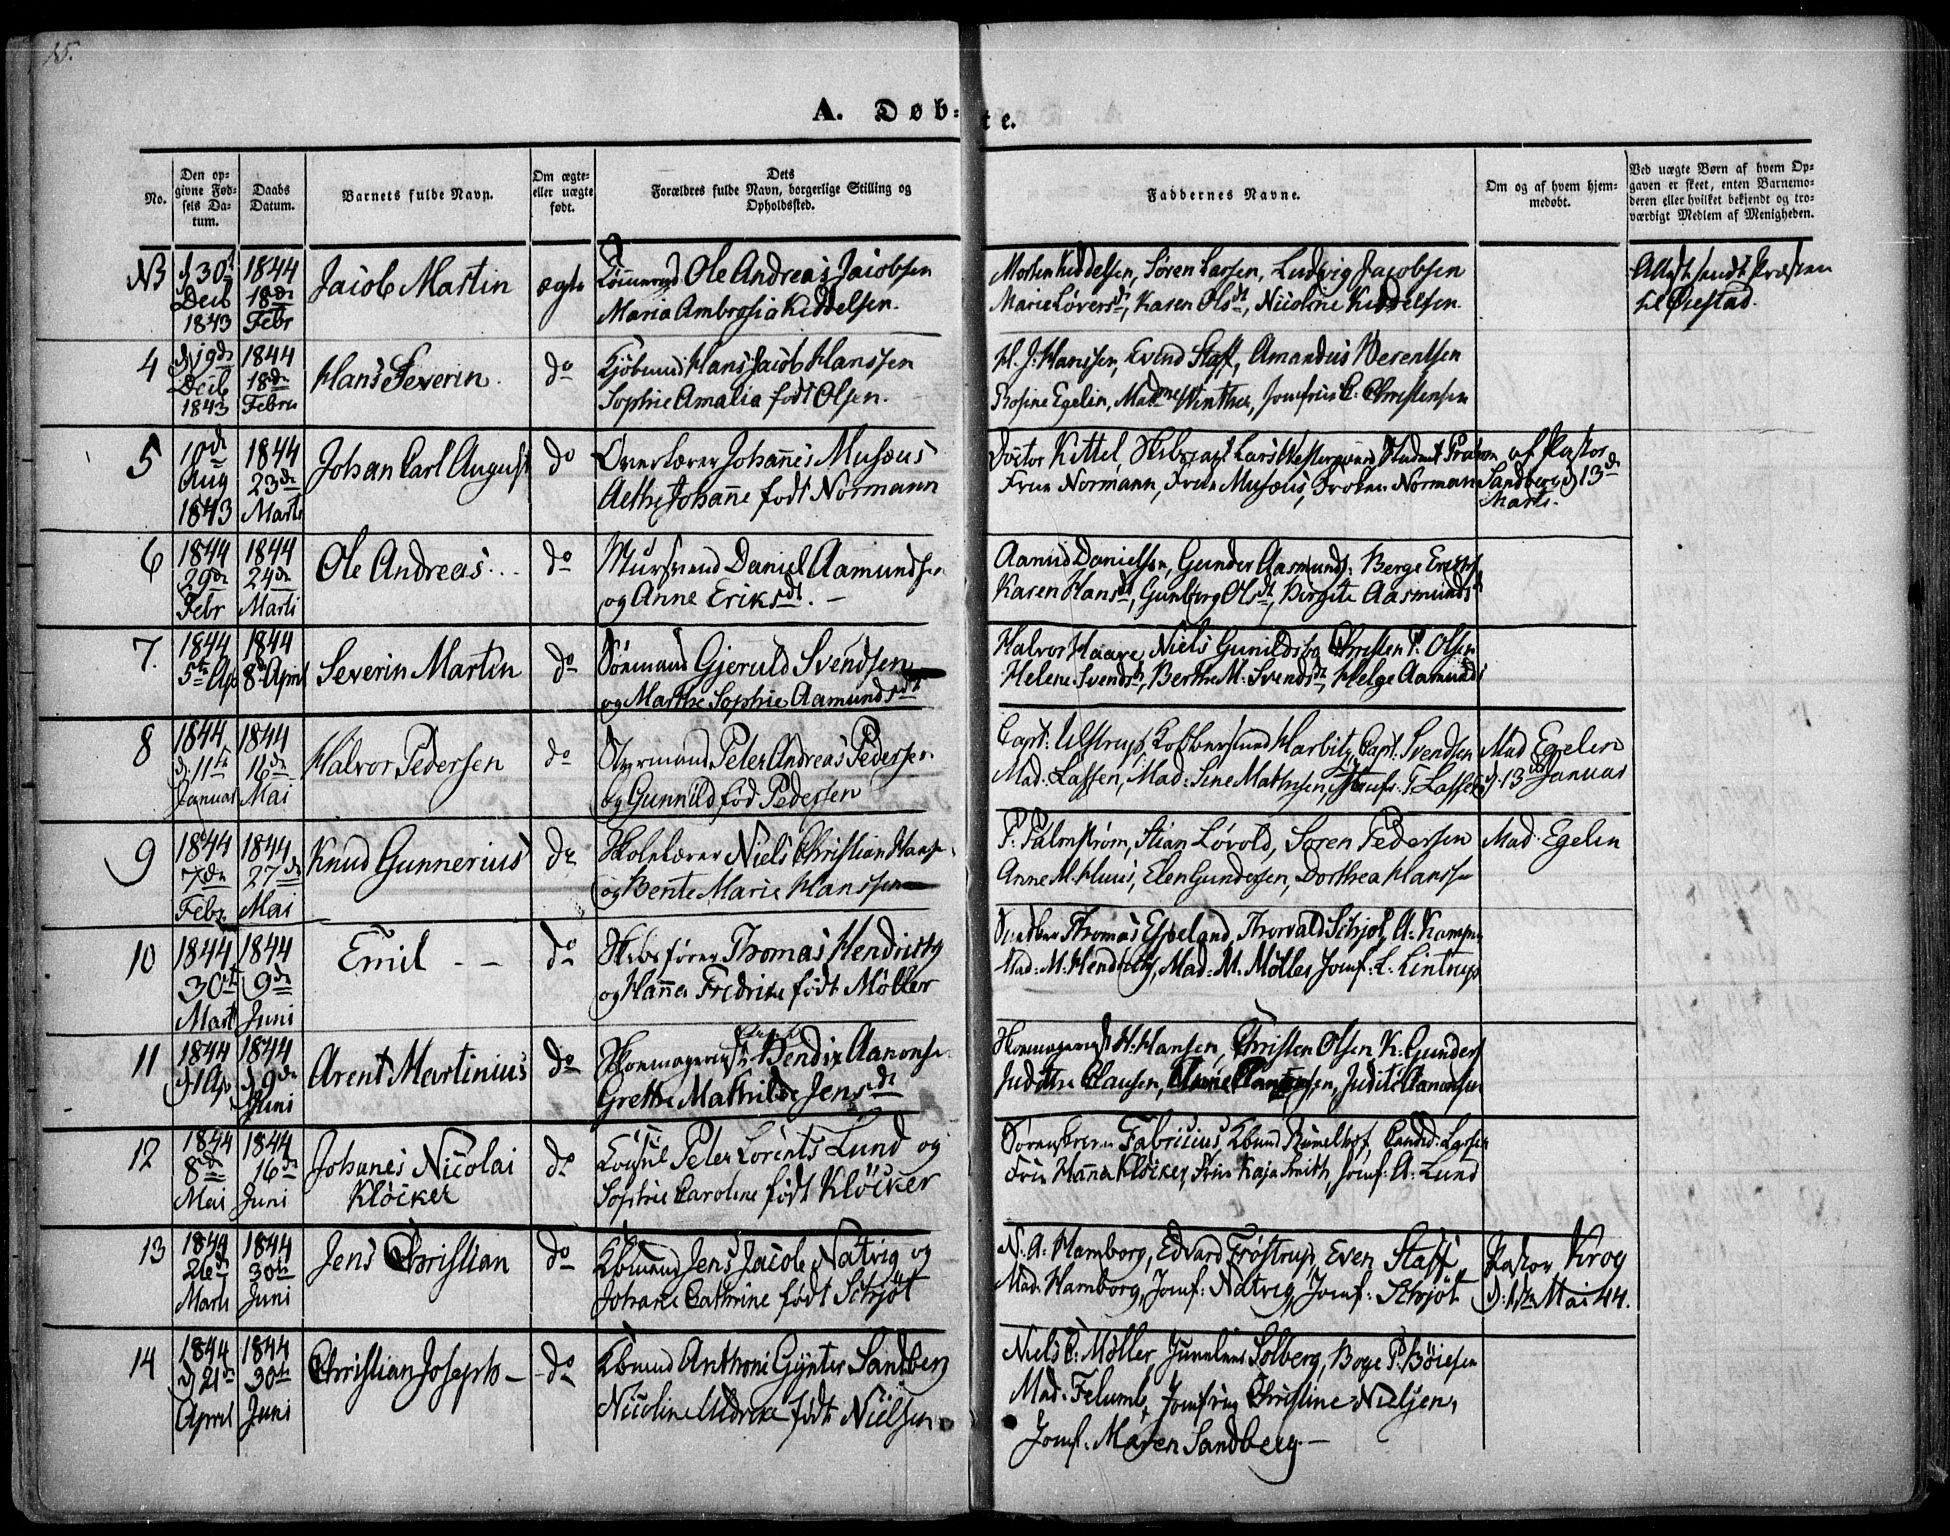 15.
A. Døb-
te.
No.
Den op-
givne Fød-
sels Da-
tum.
Daabs
Datum.
Barnets fulde Navn.
Om ægte-
eller uægte
født.
Dets
Forældres fulde Navn, borgerlige Stilling og
Opholdssted.
Faddernes Navne.
Om og af hvem hjem-
medøbt.
Ved uægte Børn af hvem Op-
gaven er skeet, enten Barnemo-
deren eller hvilket bekjendt og tro-
værdigt Medlem af Menigheden.
N3
d 30t
Decb
1843
1844
18de
Febr
Jacob Martin
ægte
Ole Andreas Jacobsen
Maria Ambrosia Kiddelsen.
Morten Kiddelsen, Søren Larsen, Ludvig Jacobsen
Marie Løversdt, Karen Olsdt, Nicoline Kiddelsen.
Attest sendt Præsten
til Øiestad.
4
d 19de
Decb
1843
1844
18de
Febru
Hans Severin.
do
Kjøbmd Hans Jacob Hanssen
Sophie Amalia født Olsen.
H. J. Hanssen, Evend Staff, Amandus Berentsen
Rosine Egelin, Madme Winther, Jomfrue C. Christensen
5
10de
Aug
1843
1844
23de
Marts
Johan Carl August
do
Overlærer Johannes Musæus
Aethe Johanne født Normann
Doctor Kittel, Skibscapt Lars Westergaard Student
Frue Normann, Frue Musæus, Frøken Normann
af Pastor
Sandberg d 13de
Marts.
6
1844
29de
Febr
1844
24de
Marti
Ole Andreas
do
Mursvend Daniel Aamundsen
og Anne Eriksdt. -
Aamund Danielsen, Gunder Aasmunds. Berge Eriks
Karen Hansdt, Gunborg Olsdt, Birgite Aasmundsdt
7.
1844
5te Ap
1844
8de April
Severin Martin
do
Sømand Gjeruld Svendsen
og Marthe Sophie Aamundsdt
Halvor Haave, Niels Gunildsbo, Christen P. Olsen
Helene Svendsdt, Berthe M. Svendsdt, Helge Aamunds
8
1844
d 11te
Januar
1844
16de
Mai
Halvor Pedersen
do
Styrmand Peter Andreas Pedersen
og Gunnild fød Pedersen
Capt: Ulstrup, Harbitz, Capt. Svendsen
Mad: Lassen, Mad: Sine Mathisen, Jomf: T Lassen
Mad Egelin
d. 13de Januar
9
1844
7de
Febr.
1844
27de
Mai
Knud Gunnerius
do
Skolelærer Niels Christian Hansen
og Bente Marie Hanssen
P. Palmstrøm, Stian Løvold, Søren Pedersen
Anne M. Huus, Elen Gundersen, Dorthea Hanssen
Mad. Egelin
10
1844
30te
Mart
1844
9de
Juni
Emil - -
do
Skibsfører Thomas Hendricky
og Hanna Fredrike født Møller
Thomas Espeland, Thorvald Schjøt, A. Kamp
Mad: M. Hendricky, Mad: M. Møller, Jomf: L. Lintrup
11
1844
d 1 Ap
1844
d 9de
Juni
Arent Martinius
do
Skomagersv. Bendix Aanonsen
Grethe Mathilde Jensdt
Skomagersvd H. Hansen, Christen Olsen, K. Gunders
Judithe Clausen, Judite Aanonsen
12
1844
8de
Mai
1844
16de
Juni
Johanes Nicolai
Kløcker
do
Consul Peter Lorents Lund og
Sophie Caroline født Kløcker
Sorenskriver Fabricius, Kbmd Rømelhof, Candid: Larsen
Frue Hanna Kløcker, Frue Kaja Smith, Jomf: A. Lund
13
1844
26de
Marts
1844
30te
Juni
Jens Christian
do
Kbmand Jens Jacob Natvig og
Johane Cathrine født Schjøt
N. A. Hamborg, Edvard Frøstrup, Even Staff
Mad: Hamborg, Jomf: Natvig, Jomf: Schjøt
Pastor Krog
d. 12 Mai 44.
14
1844
d 21de
April
1844
30te
Juni
Christian Joseph -
do
Kbmand Anthoni Gynter Sandberg
Nicoline Uldrikke født Nielsen
Niels C. Møller, Juveleer Solberg, Boye P. Bøiesen
Mad: Felumb, Jomfrue Christine Nielsen,
Jomf. Maren Sandberg. -